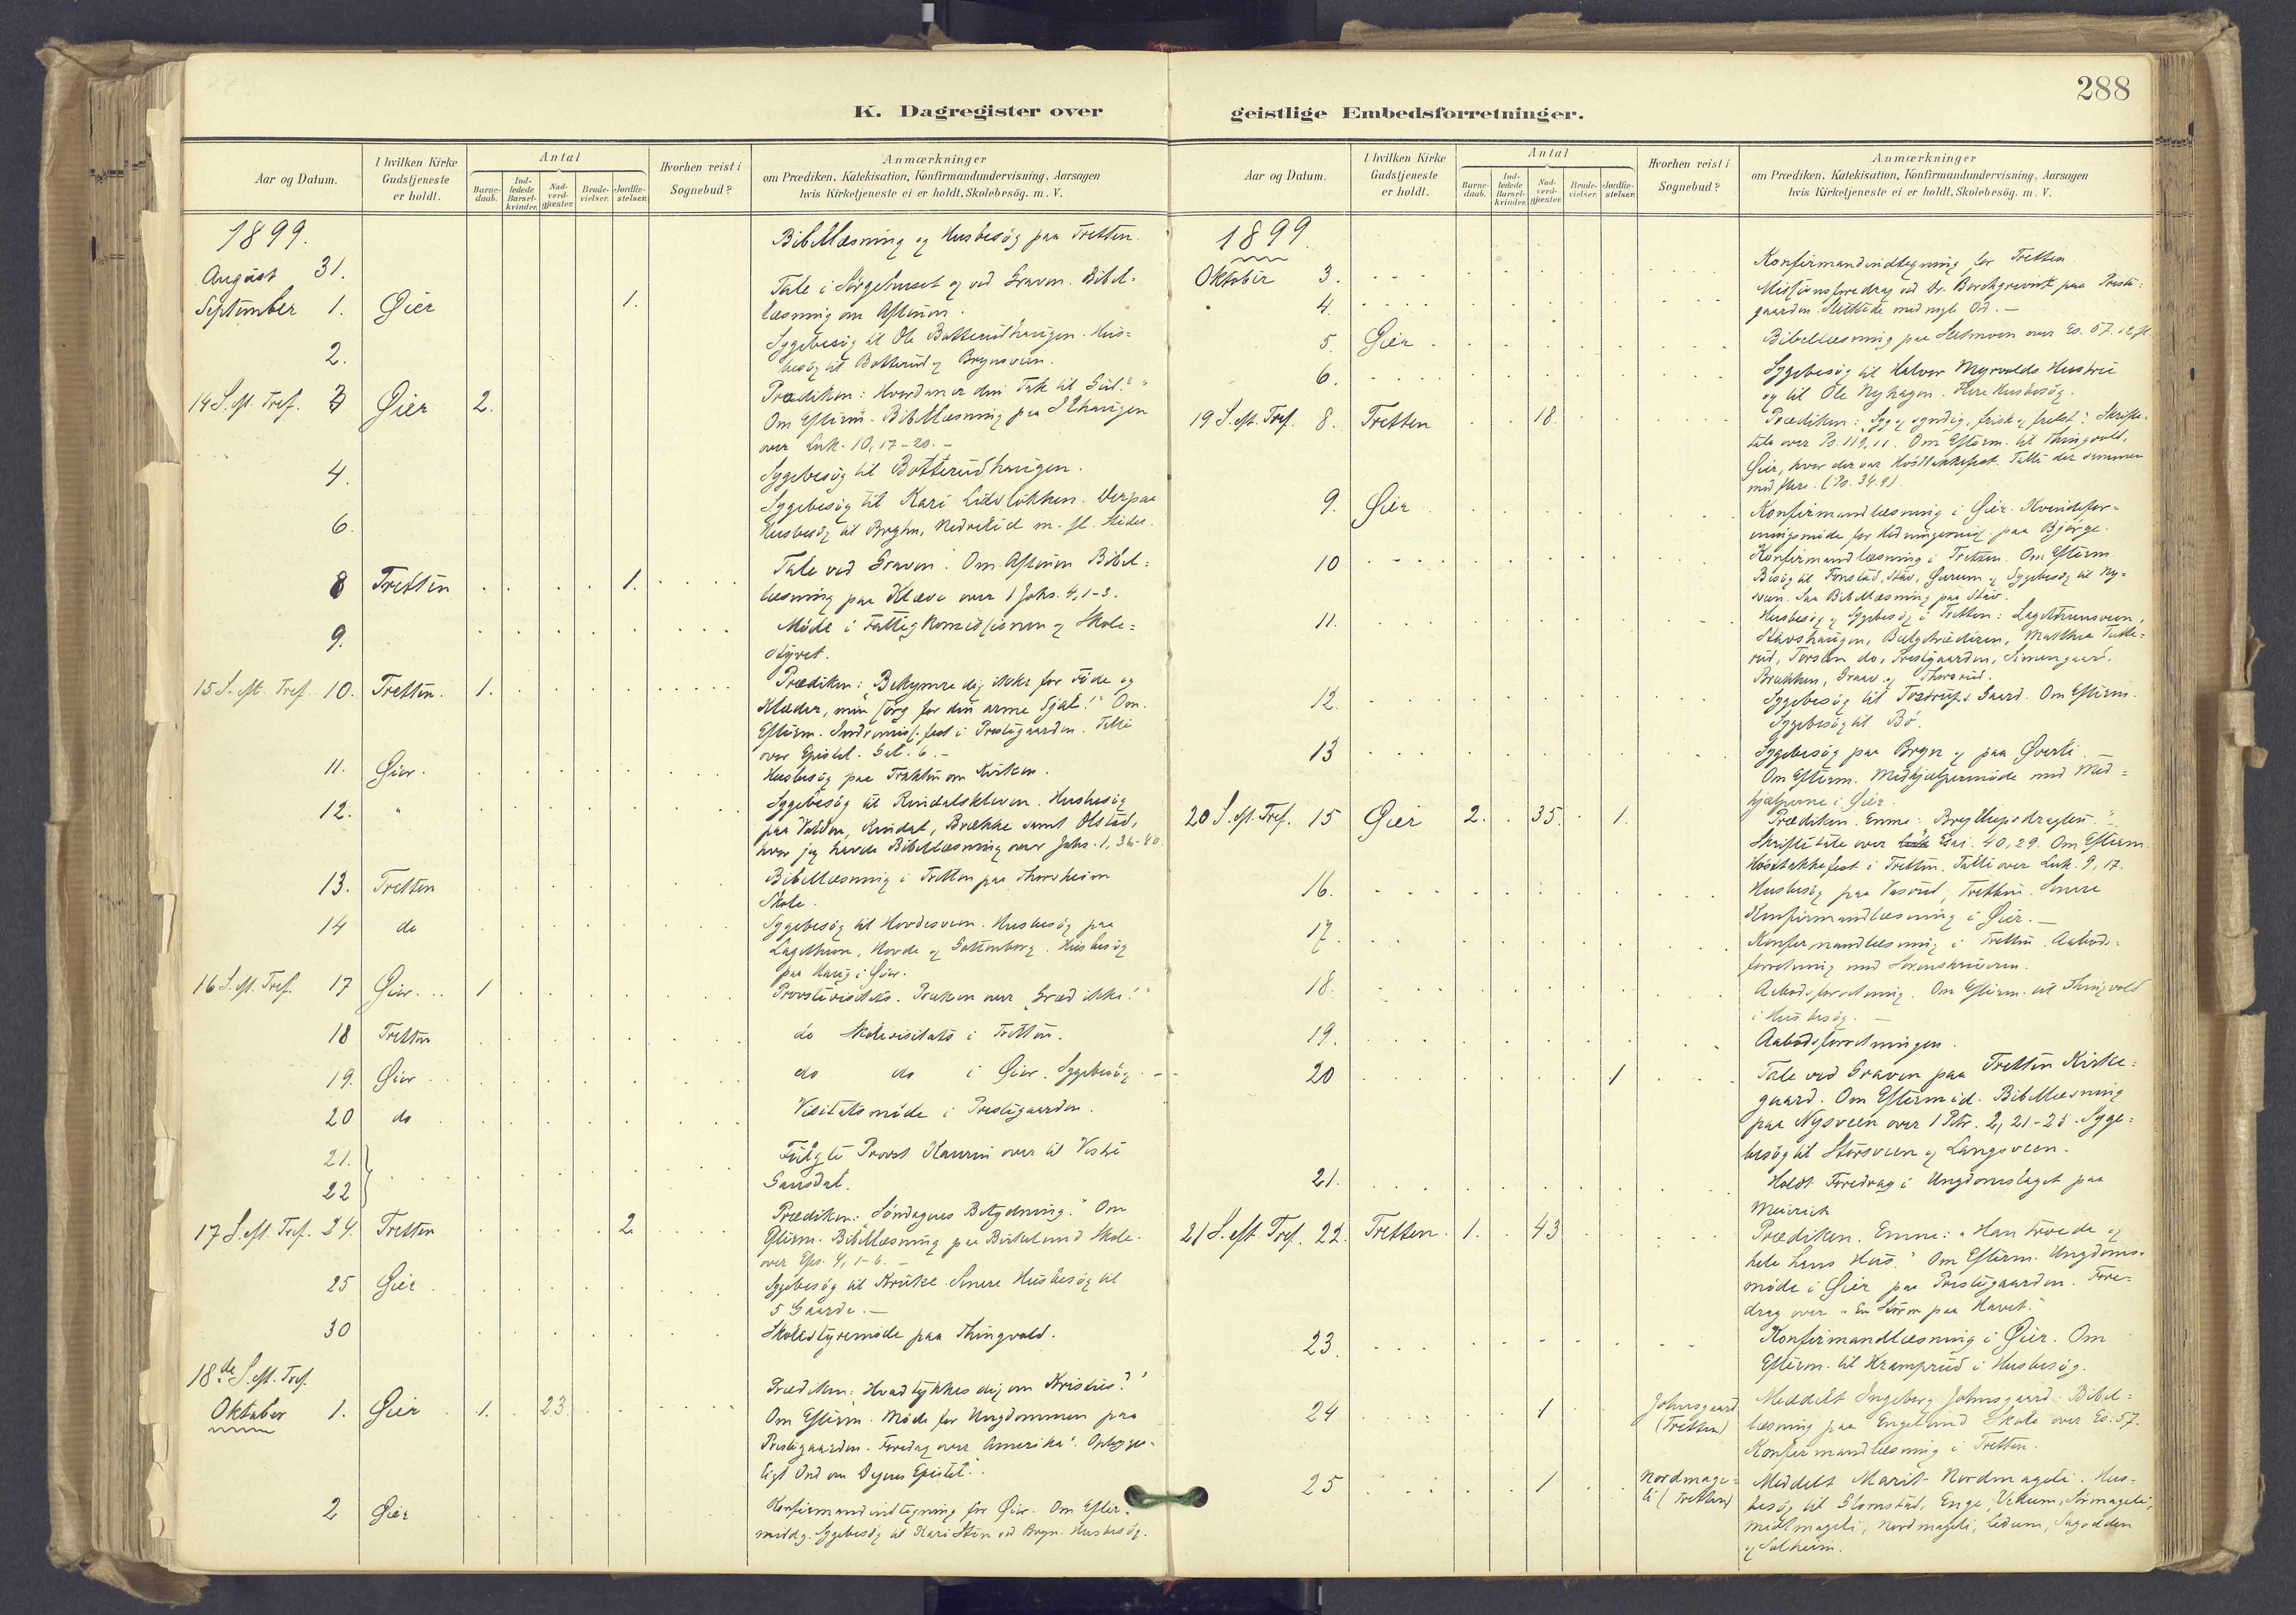 288
K. Dagregister over geistlige Embedsforretninger.
Aar og Datum.
I hvilken Kirke Gudstjeneste er holdt.
Antal
Barnedaab.
Indledede Barselkvinder.
Nadverdgjæster.
Brudevielser.
Jordfæstelser.
Hvorhen reist i Sognebud?
Anmærkninger
om Prædiken, Katekisation, Konfirmandundervisning, Aarsagen
hvis Kirketjeneste ei er holdt, Skolebesög. m. V.
1899.
August 31. Bibellæsning og Husbesög paa Tretten.
September 1. Øier 1. Tale i Sörgehuset og ved Graven. Bibel-
læsning om Aftenen.
2. Sygebesög til Ole Botterudhaugen. Hus-
besög til Botterud og Brynsveen.
14 S. eft. Tref. 3 Øier 2. Prædiken: Hvordan er din Tak til Gud?"
Om Efterm. Bibellæsning paa
over Luk. 10, 17-20.-
4. Sygebesög til Botterudhaugen.
6. Sygebesög til Kari Lidslökken. Derpaa
Husbesög til Bryhn, Nedrelid m. fl. Steder.
8 Tretten 1. Tale ved Graven. Om Aftenen Bibel-
læsning paa Kleve over 1 Johs. 4, 1-3.
9. Möde i Fattigkomissionen og Skole-
styret.
15 S. eft. Tref. 10. Tretten. 1. Prædiken: "Bekymre dig ikke for Föde og
Klæder, men sörg for din arme Sjæl!" Om
Efterm. Indremis. fest i Prestegaarden. Talte
over Epistel. Gal. 6.-
11. Øier. Husbesög paa Trakten om Kirken.
12. " Sygebesög til Rindalskleven. Husbesög
paa Volden, Rindal, Brække samt Olstad,
hvor jeg havde Bibellæsning over Johs. 1, 36-40.
13. Tretten Bibellæsning i Tretten paa Thorsheim
Skole.
14 do Sygebesög til Hovdesveen. Husbesög paa
Lagethun, Hovde og Gottenborg. Husbesög
paa Haug i Øier.
16 S. eft. Tref. 17 Øier. 1 Provstevisitats. Præken over "Græd ikke!"
18 Tretten do Skolevisitats i Tretten.
19. Øier do do i Øier. Sygebesög.-
20 do Visitatsmöde i Prestegaarden.
21.
22 Fulgte Provst Kaurin over til Vestre
Gausdal.
17 S. eft. Tref. 24. Tretten 2 Prædiken: "Söndagens Betydning." Om
Efterm. Bibellæsning paa Birkelund Skole
over Efs. 4, 1-6.-
25 Øier Sygebesög til Kruke. Senere Husbesög til
5 Gaarde.-
30 Skolestyremöde paa Thingvold.
18de S. eft. Tref.
Oktober 1. Øier 1. 23. Prædiken: Hvad tykkes dig om Kristus?"
Om Efterm. Möde for Ungdommen paa
Prestegaarden. Foredrag over "Amerika". Opbygge-
ligt Ord om Dagens Epistel.
2 Øier Konfirmandindtegning for Øier. Om Efter-
middag. Sygebesög til Kari Sten ved Bryn. Husbesög.
Aar og Datum.
I hvilken Kirke Gudstjeneste er holdt.
Antal
Barnedaab.
Indledede Barselkvinder.
Nadverdgjæster.
Brudevielser.
Jordfæstelser.
Hvorhen reist i Sognebud?
Anmærkninger
om Prædiken, Katekisation, Konfirmandundervisning, Aarsagen
hvis Kirketjeneste ei er holdt, Skolebesög. m. V.
1899.
Oktober 3. Konfirmandindtegning for Tretten.
4. Missionsforedrag ved Hr. Borchgrevink paa Preste-
gaarden. Sluttede med nogle Ord.-
5. Øier Bibellæsning paa over Es. 57.
6. Sygebesög til Halvor Myrvolds Hustru
og til Ole Nyhagen. Flere Husbesög.
19 S. eft. Tref. 8. Tretten 18. Prædiken: "Syg og syndig, frisk og frelst." Skrifte-
tale over Ps. 119, 11. Om Efterm. til Thingvold,
Øier, hvor der var Hösttakkefest. Talte der sammen
med flere. (Ps. 34.9).
9. Øier Konfirmandlæsning i Øier. Kvindefor-
eningsmöde for Hedningemis. paa Björge.
10 Konfirmandlæsning i Tretten. Om Efterm.
Besög til Fonstad, Stav, Ourum og Sygebesög til Ny-
sveen. Saa Bibellæsning paa Stav.
11. Husbesög og Sygebesög i Tretten: Lagethunsveen,
Stavshaugen, Mathea
rud, Torsten do, Prestgaarden, Simengaard,
Brækken, Graav og Thorsrud.
12. Sygebesög til Gaard. Om Efterm.
Sygebesög til Bö.
13 Sygebesög paa Bryn og paa Øverli.-
Om Efterm. Medhjælpermöde med Med-
hjælperne i Øier.
20 S. eft. Tref. 15 Øier 2. 35. 1. Prædiken. Emne: "Bryllupsdragten."
Skriftetale over Esai. 40, 29. Om Efterm.
Hösttakkefest i Tretten. Talte over Luk. 9, 17.
16. Husbesög paa Vasrud, Tretten. Senere
Konfirmandlæsning i Øier.-
17. Konfirmandlæsning i Tretten. Aabods-
forretning med Sorenskriveren.
18. Aabodsforretning. Om Efterm. til Thingvold
i Husbesög.-
19. Aabodsforretningen.
20 1 Tale ved Graven paa Tretten Kirke-
gaard. Om Eftermid. Bibellæsning
paa Nysveen over 1 Petr. 2, 21-25. Syge-
besög til Storsveen og Langsveen.
21. Holdt Foredrag i Ungdomslaget paa
21 S. eft. Tref. 22. Tretten. 1. 43 Prædiken. Emne: "Han troede og
hele hans Hus." Om Efterm. Ungdoms-
möde i Øier paa Prestegaarden. Fore-
drag over "En Storm paa Havet."
23. Konfirmandlæsning i Øier. Om
Efterm. til Kramprud i Husbesög.
24 1 Johnsgaard (Tretten) Meddelt Ingeborg Johnsgaard. Bibel-
læsning paa Engelund Skole over Es. 57.
Konfirmandlæsning i Tretten.
25 1 Nordmage-
li (Tretten) Meddelt Marit Nordmageli. Hus-
besög til Glomstad, Enge, Sörmageli,
Midtmageli, Nordmageli, Lidum, Sagodden
og Solheim.